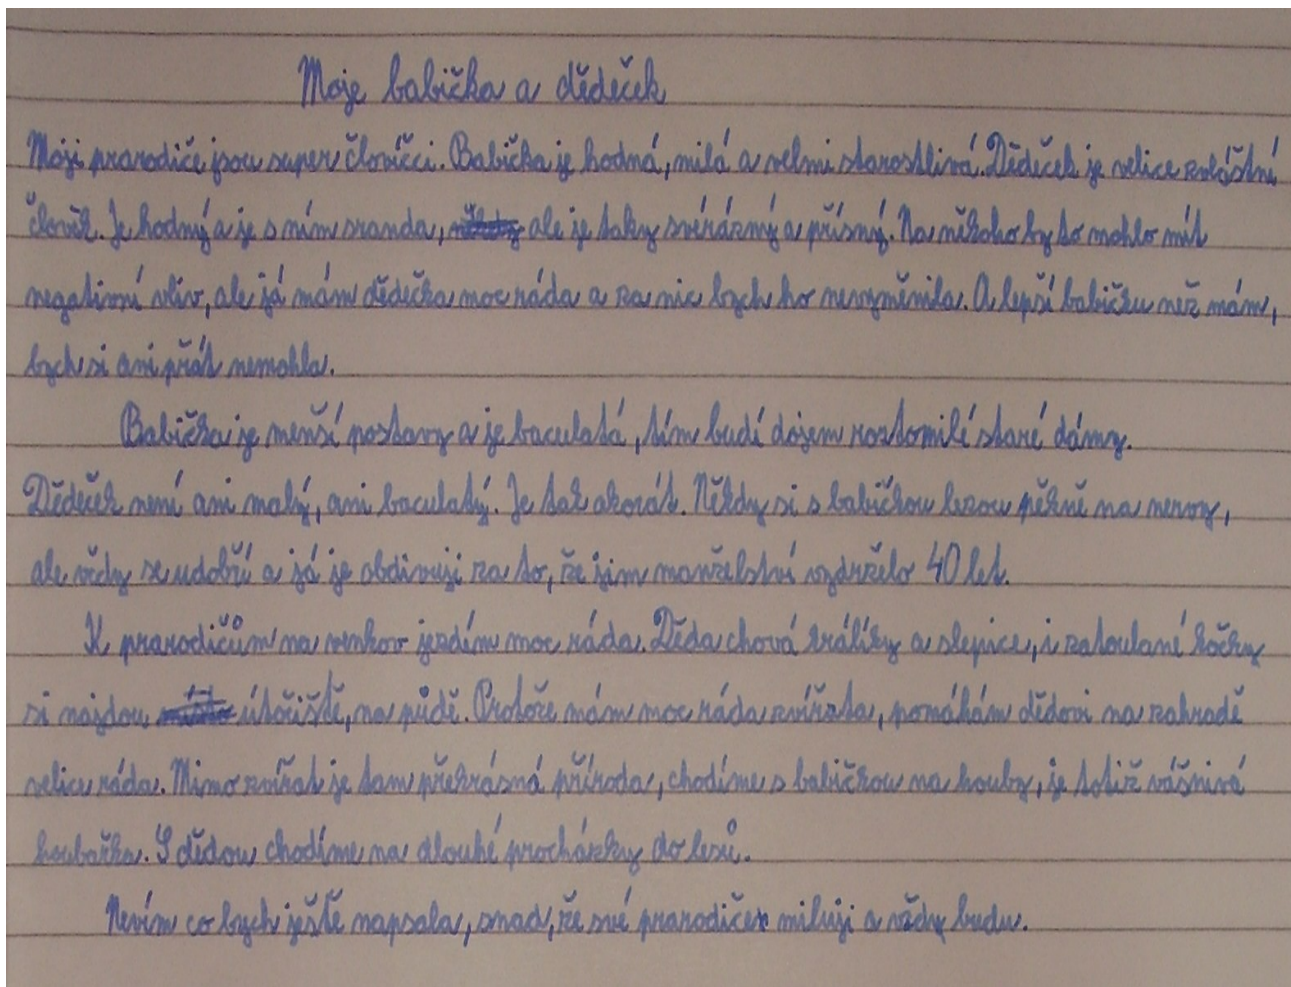 Moje babička a dědeček
Moji prarodiče jsou super človíčci. Babička je hodná, milá a velmi starostlivá. Dědeček je velice zvláštní
člověk. Je hodný a je s ním sranda, ale je taky svérázný a přísný. Na někoho by to mohlo mít
negativní vliv, ale já mám dědečka moc ráda a za nic bych ho nevyměnila. A lepší babičku než mám,
bych si ani přát nemohla.
Babička je menší postavy a je baculatá, tím budí dojem roztomilé staré dámy.
Dědeček není ani malý, ani baculatý. Je tak akorát. Někdy si s babičkou lezou pěkně na nervy,
ale vždy se udobří a já je obdivuji za to, že jim manželství vydrželo 40 let.
K prarodičům na venkov jezdím moc ráda. Děda chová králíky a slepice, i zatoulané kočky
si najdou útočiště, na půdě. Protože mám moc ráda zvířata, pomáhám dědovi na zahradě
velice ráda. Mimo zvířat je tam překrásná příroda, chodíme s babičkou na houby, je totiž vášnivá
houbařka. S dědou chodíme na dlouhé procházky do lesů.
Nevím co bych ještě napsala, snad, že své prarodiče miluji a vždy budu.